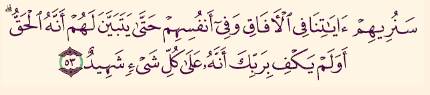 سَنُرِيهِمْ ءَايَٰتِنَا فِي ٱلْأٓفَاقِ وَفِيٓ أَنفُسِهِمْ حَتَّىٰ يَتَبَيَّنَ لَهُمْ أَنَّهُ ٱلْحَقُّ ۗ
أَوَلَمْ يَكْفِ بِرَبِّكَ أَنَّهُۥ عَلَىٰ كُلِّ شَيْءٍ شَهِيدٌ ٥٣